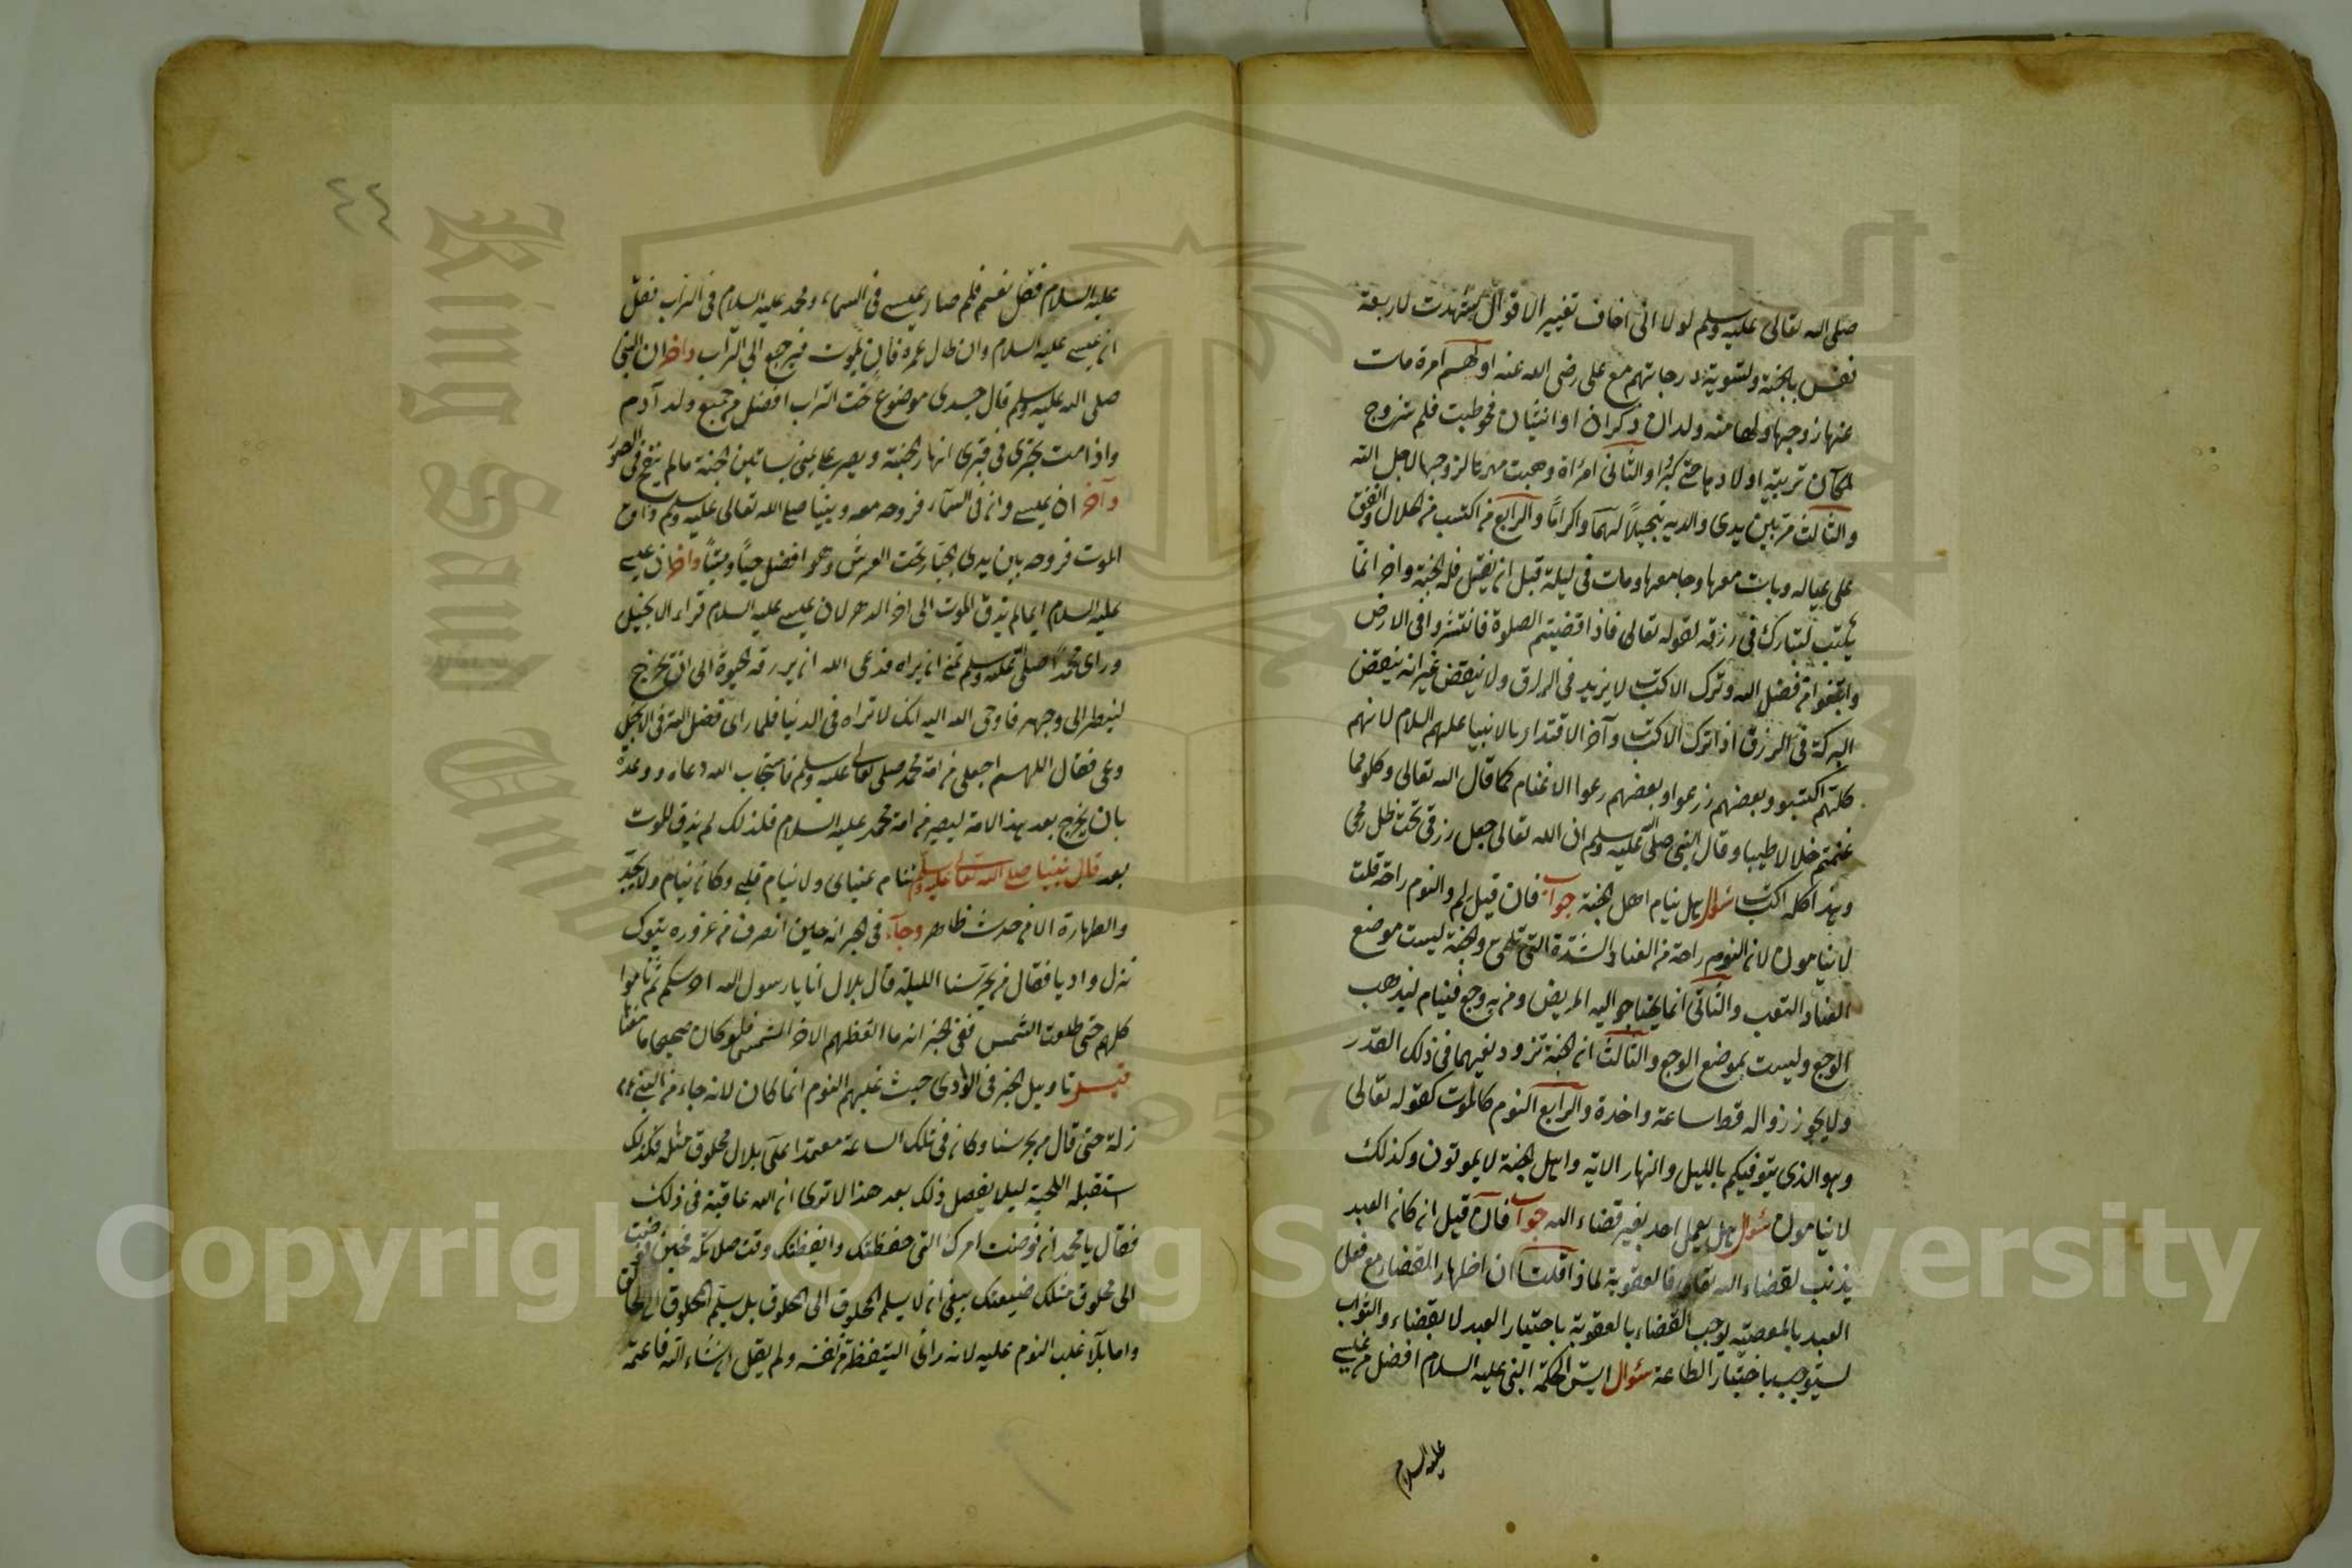 صلى الله تعالى عليه وسلم لولا انى اخاف تغيير الاقوال لشهدت لاربعة
نفس بالجنة ولتسوية درجاتهم مع على رضى الله عنه اولهم امرة مات
عنها زوجها ولها منه ولدان ذكران او انثيان فخوطبت فلم تتزوج
لمكان تربية اولادها حتى كبروا والثانى امرأة وهبت مهرها لزوجها لاجل الله
والثالث من بين يدى والديه تبجيلا لهما واكراما والرابع من اكتسب من الحلال وانفق
على عياله وبات معها وجامعها ومات فى ليلة قبل ان يغتسل فله الجنة واخر انما
يكتسب ليتبارك فى رزقه لقوله تعالى فاذا قضيتم الصلوة فانتشروا فى الارض
وابتغوا من فضل الله وترك الاكتسب لا يزيد فى الرزق ولا ينقص غير انه ينقص
البركة فى الرزق اذا ترك الاكتسب وآخر الاقتداء بالانبيا عليهم السلام لانهم
كلهم اكتسبو وبعضهم زرعوا وبعضهم رعوا الاغنام كما قال الله تعالى وكلوا مما
غنمتم حلالا طيبا وقال النبى صلى الله عليه وسلم ان الله تعالى جعل رزقى تحت ظل رمحى
وهذا كله اكتسب سؤال هل ينام اهل الجنة جواب فان قيل لم والنوم راحة قلت
لا ينامون لان النوم راحة من العناء والشدة التى تلحق والجنة ليست موضع
العناد التعب والثانى انما يحتاج اليه المريض ومن به وجع فينام ليذهب
الوجع وليست بموضع الوجع والثالث ان الجنة تزود نعيمها فى ذلك القدر
ولا يجوز زواله قط ساعة واحدة والرابع النوم كالموت كقوله تعالى
وهو الذى يتوفيكم بالليل والنهار الاية واهل الجنة لا يموتون وكذلك
لا ينامون سؤال هل يعمل احد بغير قضاء الله جواب فان قيل ان كان العبد
يذنب لقضاء الله تعالى فالعقوبة لماذا قلت ان اظهار القضاء مع فعل
العبد بالمعصية يوجب القضاء بالعقوبة باختيار العبد لا بقضاء والثواب
يستوجب باختيار الطاعة سؤال ايش الحكمة النبى عليه السلام افضل من عيسى
عليه السلام
٤٤
عليه السلام فضل نفسه فلم صار عيسى فى السماء ومحمد عليه السلام فى التراب فقل
ان عيسى عليه السلام وان طال عمره فان يموت فيرجع الى التراب واخر ان النبى
صلى الله عليه وسلم قال جسدى موضوع تحت التراب افضل من جميع ولد آدم
واذا مت تجرى فى قبرى انهار الجنة ويصير على يمينى بساتين الجنة مالم ينفخ فى الصور
وآخر ان عيسى وان فى السماء فروحه معه ونبينا صلى الله تعالى عليه وسلم ذاق
الموت فروحه بين يدى الجبار تحت العرش وهو افضل حيا وميتا واخر ان عيسى
عليه السلام ايما لم يذق الموت الى اخر الدهر لان عيسى عليه السلام قراء الانجيل
وراى محمدا صلى الله عليه وسلم تمنى ان يراه فدعى الله ان يرزقه الحيوة الى ان تخرج
لينظر الى وجهه فاوحى الله اليه انك لا تراه فى الدنيا فلما راى فضل امته فى الانجيل
وعى فقال اللهم اجعلنى من امة محمد صلى تعالى عليه وسلم فاستجاب الله دعاه ووعده
بان يخرج بعد هذا الامة ليصير من امة محمد عليه السلام فلذلك لم يذق الموت
بعد قال نبينا صلى الله تعالى عليه وسلم تنام عيناى ولا ينام قلبى وكان ينام ولا يجدد
والطهارة الا من حدث ظاهر وجاء فى الخبر انه حين انصرف من غزوة تبوك
نزل واديا فقال من يحرسنا الليلة قال بلال انا يا رسول الله احرسكم ثم ناموا
كلهم حتى طلعت الشمس ففى الخبر انه ما ايقظهم الا حر الشمس فلو كان صحيحا ما معنا
قيل تاويل الخبر فى الوادى حيث غلبهم النوم انما كان لانه جاء من النبى
زلة حتى قال من يحرسنا وكان فى تلك الساعة معتمدا على بلال مخلوق مثله فكذلك
استقبله اللحية ليلا يفصل ذلك بعد هذا الا ترى ان الله عاقبه فى ذلك
فقال يا محمد ان فوضت امرك التى حفظتك وايقظتك وقت صلاتك فحين فوضت
الى مخلوق مثلك ضيعتك ينبغى ان لا يسلم المخلوق الى المخلوق بل يسلم المخلوق الى الخالق
واما بلا غلب النوم عليه لانه راى اليقظة من نفسه ولم يقل ان شاء الله فاعمته